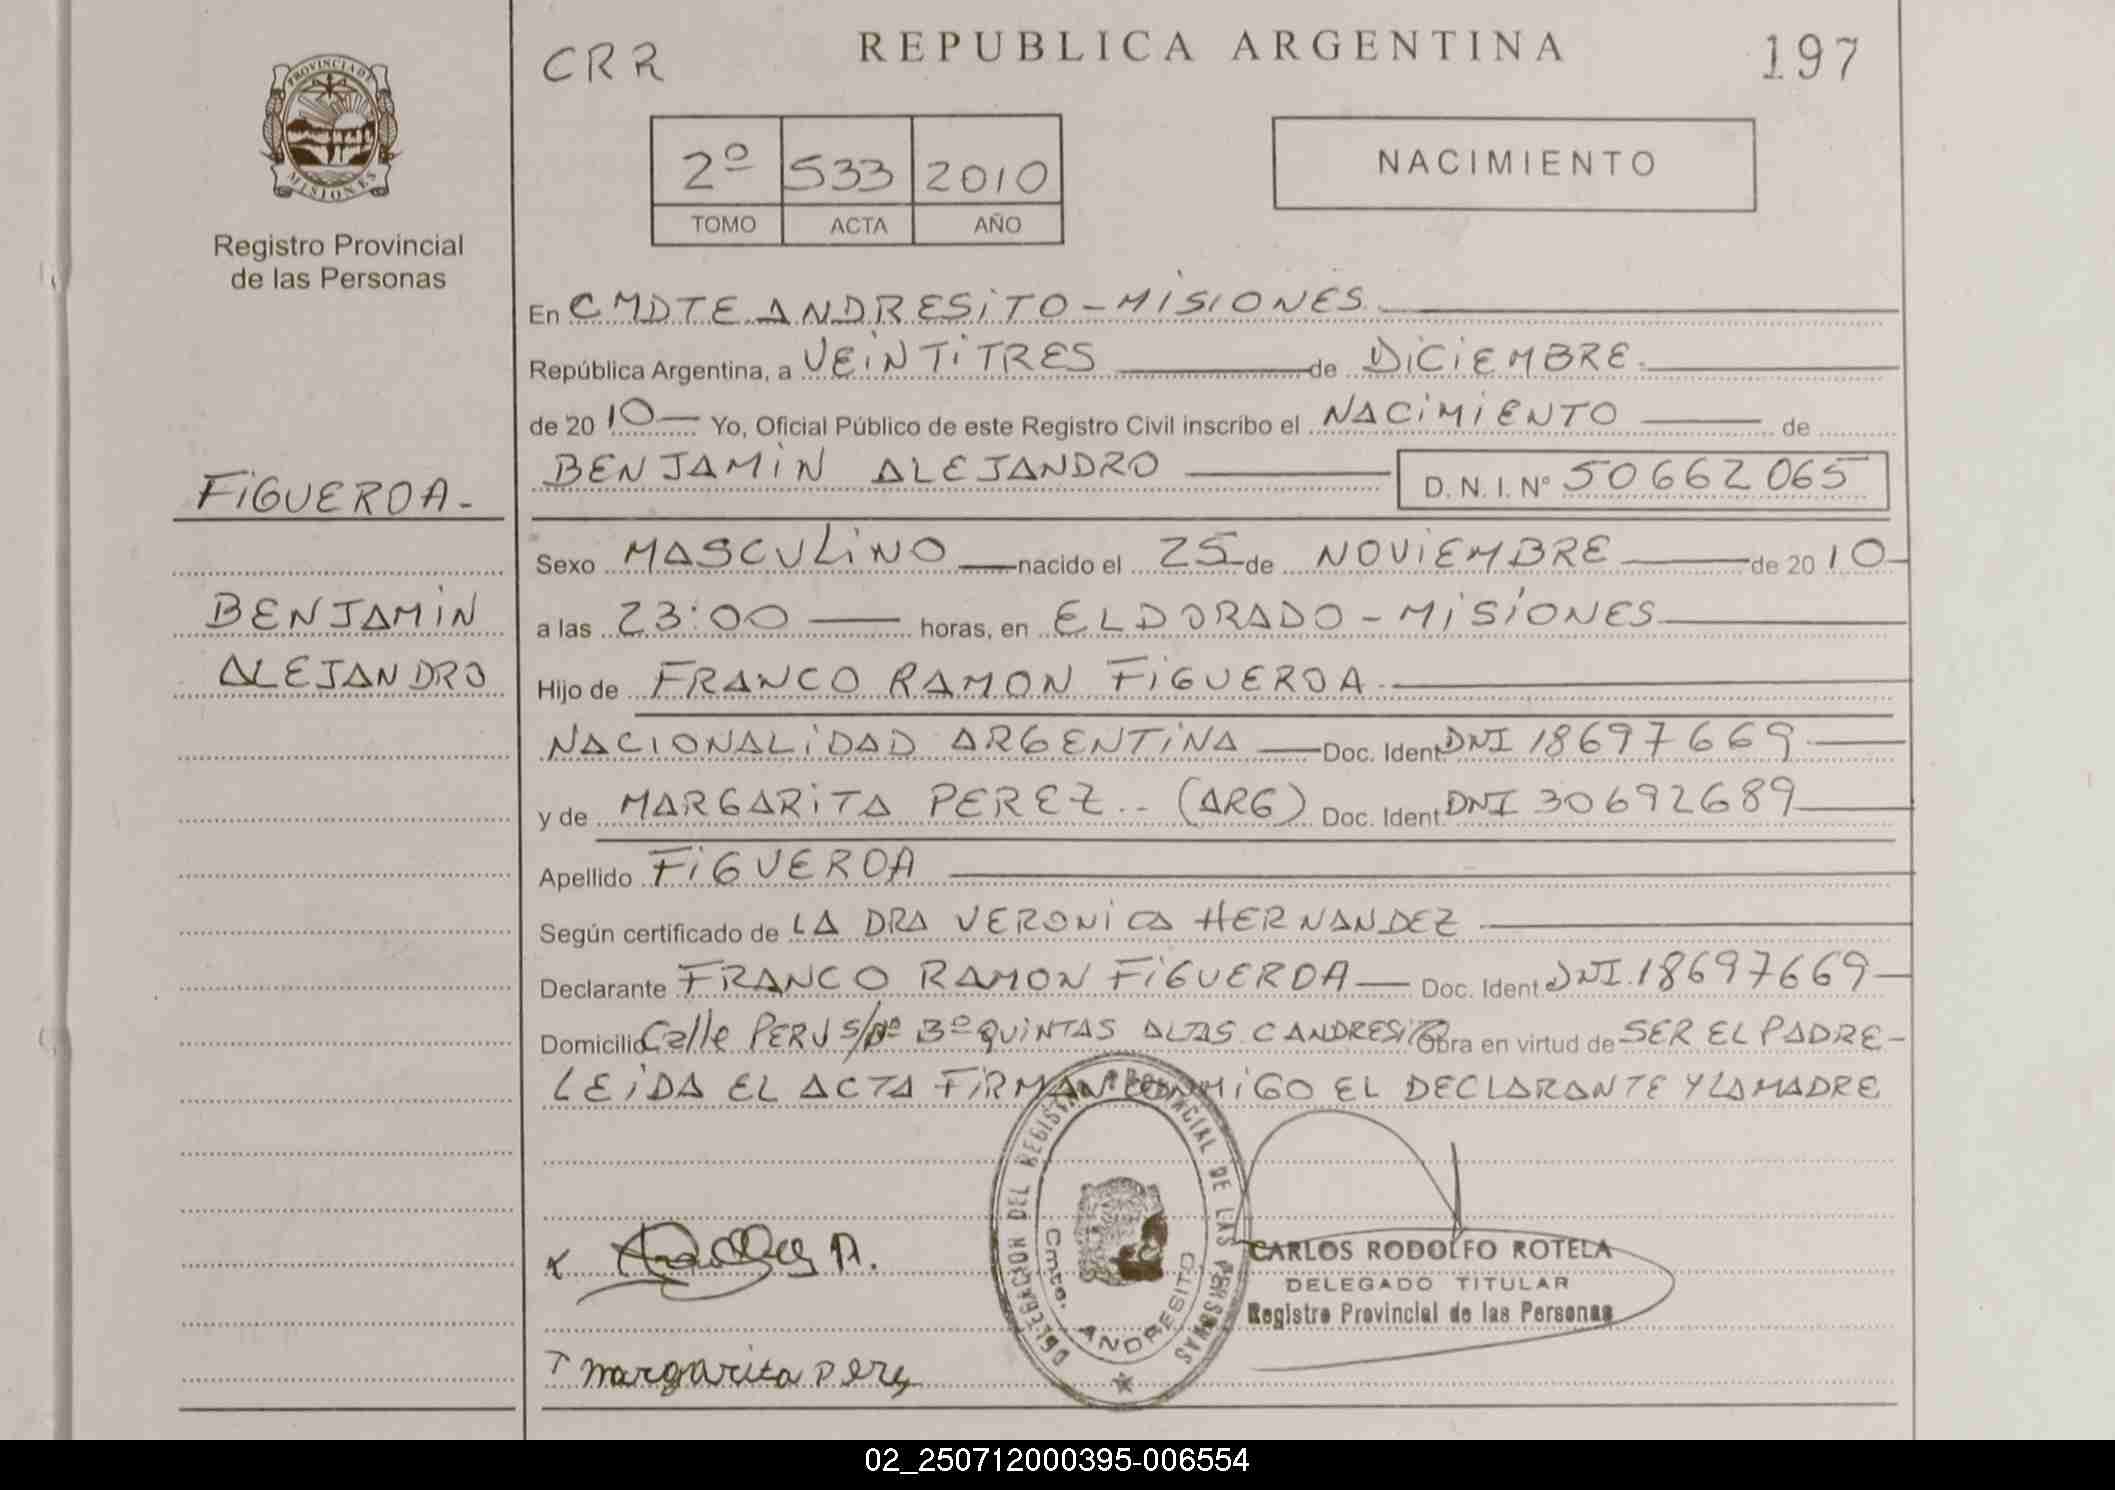 CRR
REPUBLICA ARGENTINA
197
PROVINCIA DE
MISIONES
Registro Provincial
de las Personas
2º 533 2010
TOMO ACTA AÑO
NACIMIENTO
En CMDTE ANDRESITO - MISIONES
República Argentina, a VEINTITRES de DICIEMBRE
de 2010 Yo, Oficial Público de este Registro Civil inscribo el NACIMIENTO de
BENJAMIN ALEJANDRO D. N. I. Nº 50662065
FIGUEROA-
BENJAMIN
ALEJANDRO
Sexo MASCULINO nacido el 25 de NOVIEMBRE de 2010
a las 23:00 horas, en ELDORADO - MISIONES
Hijo de FRANCO RAMON FIGUEROA
NACIONALIDAD ARGENTINA Doc. Ident. DNI 18697669
y de MARGARITA PEREZ.. (ARG) Doc. Ident. DNI 30692689
Apellido FIGUEROA
Según certificado de LA DRA VERONICA HERNANDEZ
Declarante FRANCO RAMON FIGUEROA Doc. Ident DNI.18697669
Domicilio Calle PERU S/Nº Bº QUINTAS ALTAS C ANDRESITO Obra en virtud de SER EL PADRE-
LEIDA EL ACTA FIRMAN CONMIGO EL DECLARANTE Y LA MADRE
DELEGACION DEL REGISTRO PROVINCIAL DE LAS PERSONAS
Cmte. ANDRESITO
CARLOS RODOLFO ROTELA
DELEGADO TITULAR
Registro Provincial de las Personas
margarita perez
02_250712000395-006554